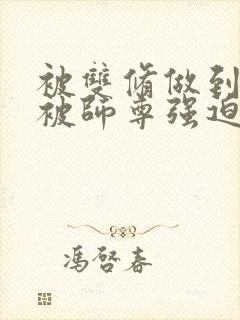 被雙脩做到
被師尊强迫
馮啓春